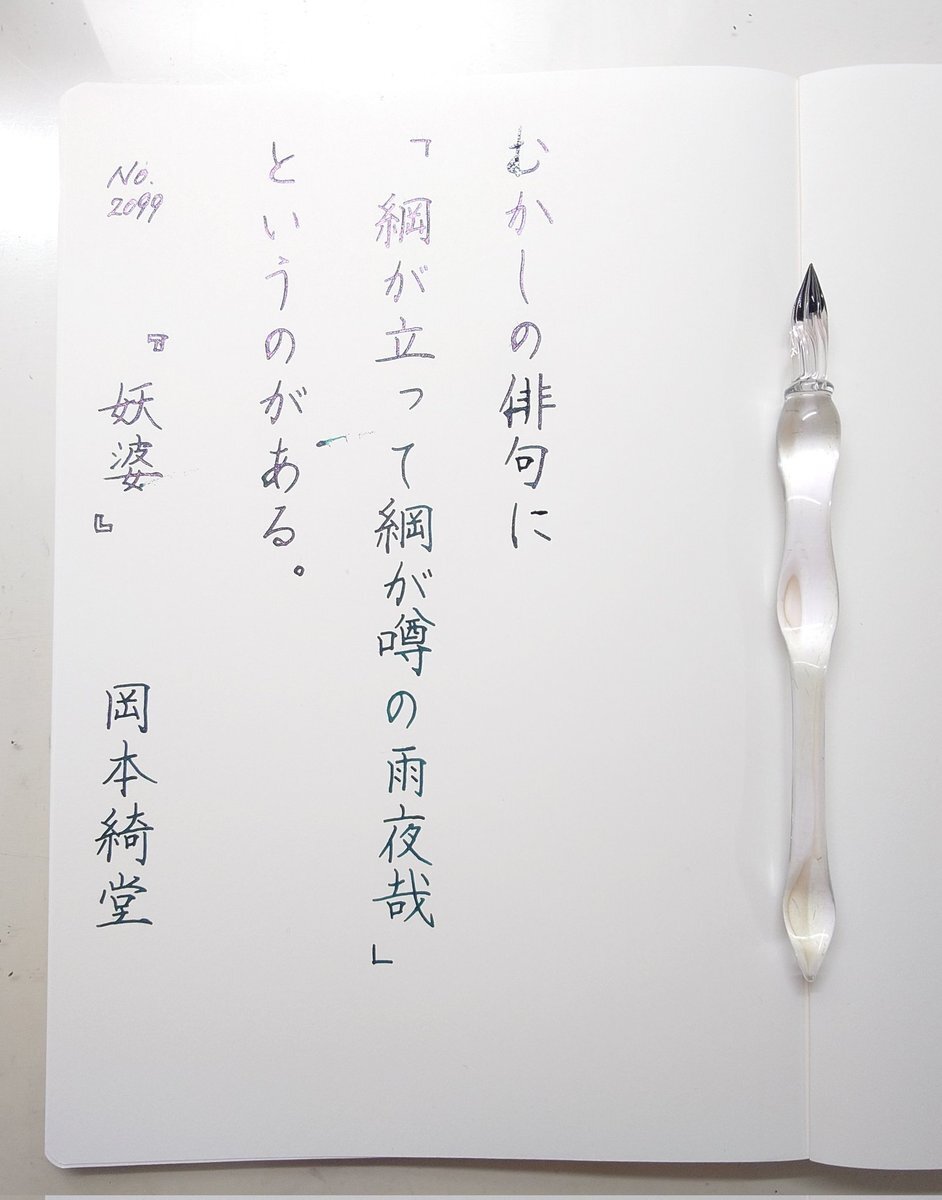 むかしの俳句に
「綱が立って綱が噂の雨夜哉」
というのがある。
No.
2099
『妖婆』 岡本綺堂